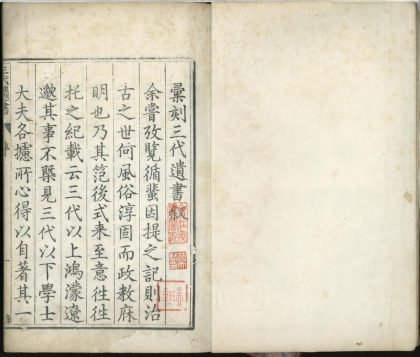 彙刻三代遺書叙
余嘗攷覽循蜚因提之記則治
古之世何風俗淳固而政教庥
明也乃其范後式来至意徃徃
托之紀載云三代以上鴻濛遼
邈其事不槩見三代以下學士
大夫各攄所心得以自著其一
三代遺書